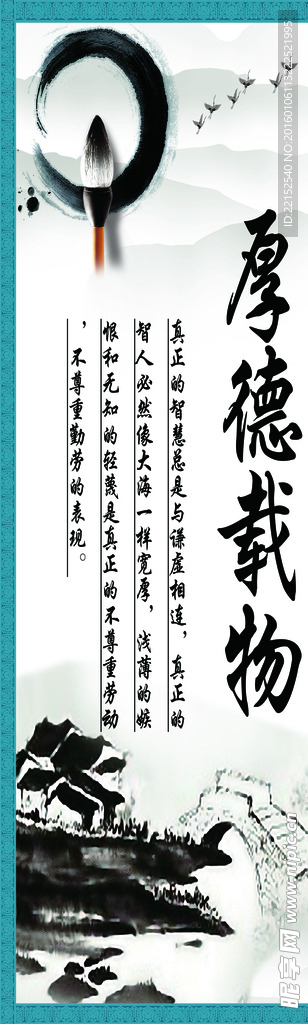 厚德载物
真正的智慧总是与谦虚相连，真正的
智人必然像大海一样宽厚，浅薄的嫉
恨和无知的轻蔑是真正的不尊重劳动
，不尊重勤劳的表现。
ID:22152540 NO:20160106113222521995
昵享网 www.nipic.cn